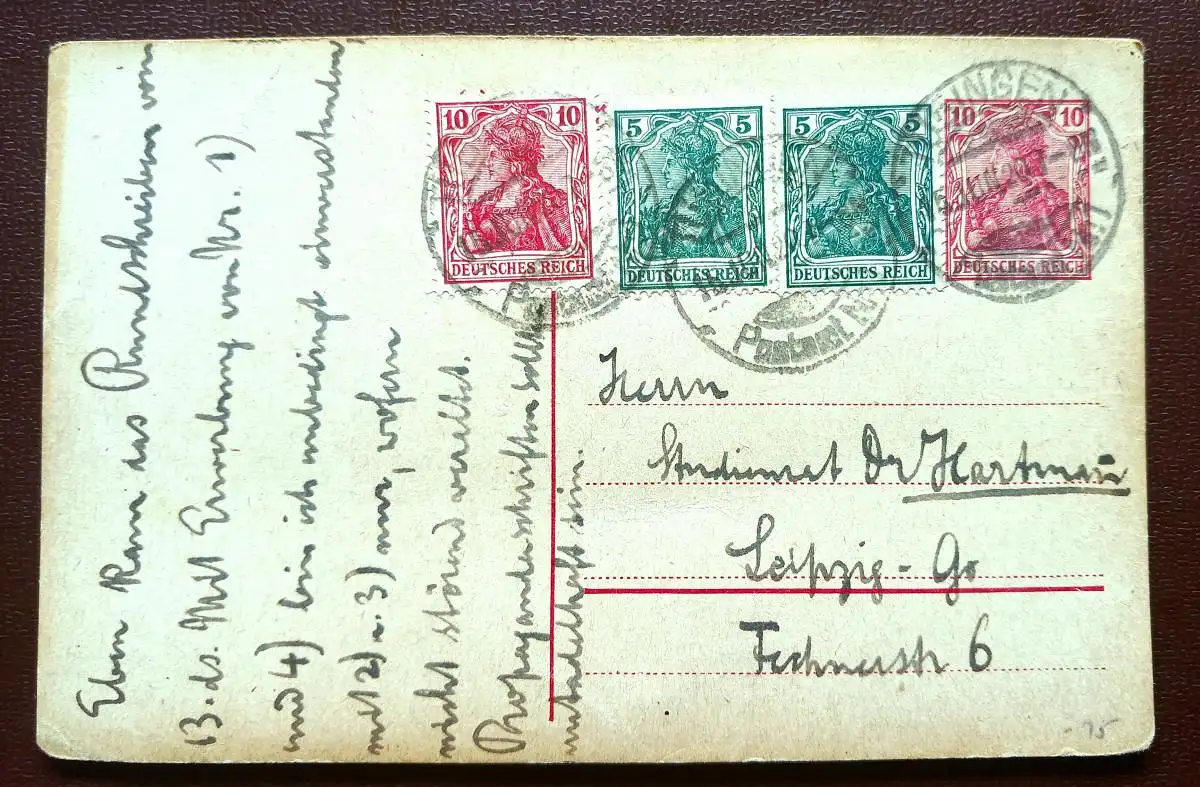 Eben kam das Rundschreiben vom
13. ds. Mit Erwerbung von Nr. 1)
und 4) bin ich unbedingt einverstanden
mit 2) u. 3) nur, wofern
nicht störend veraltet.
Propagandaschriften sollten
untadelhaft sein.
10 10
DEUTSCHES REICH
5 5
DEUTSCHES REICH
5 5
DEUTSCHES REICH
10 10
DEUTSCHES REICH
INGEN
Postamt Nr
Herrn
Studienrat Dr Hartmann
Leipzig - Go
Fechnerstr 6
- 75